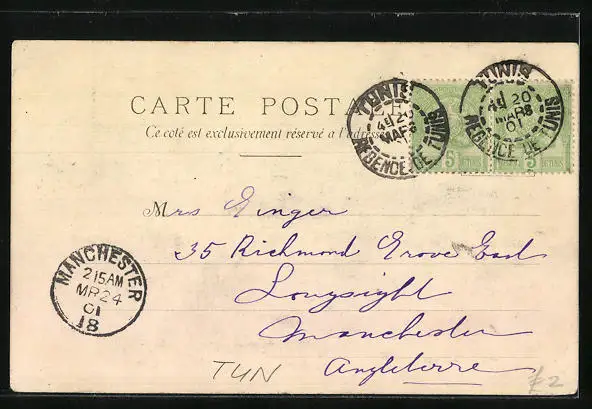 CARTE POSTALE
Ce coté est exclusivement réservé à l'adresse
TUNIS
20
MARS
REGENCE DE TUNIS
TUNIS
20
MARS
01
REGENCE DE TUNIS
5 5
Mrs Einger
35 Richmond Grove East
Longsight
Manchester
Angleterre
MANCHESTER
2 15AM
MR 24
01
18
TUN
£2